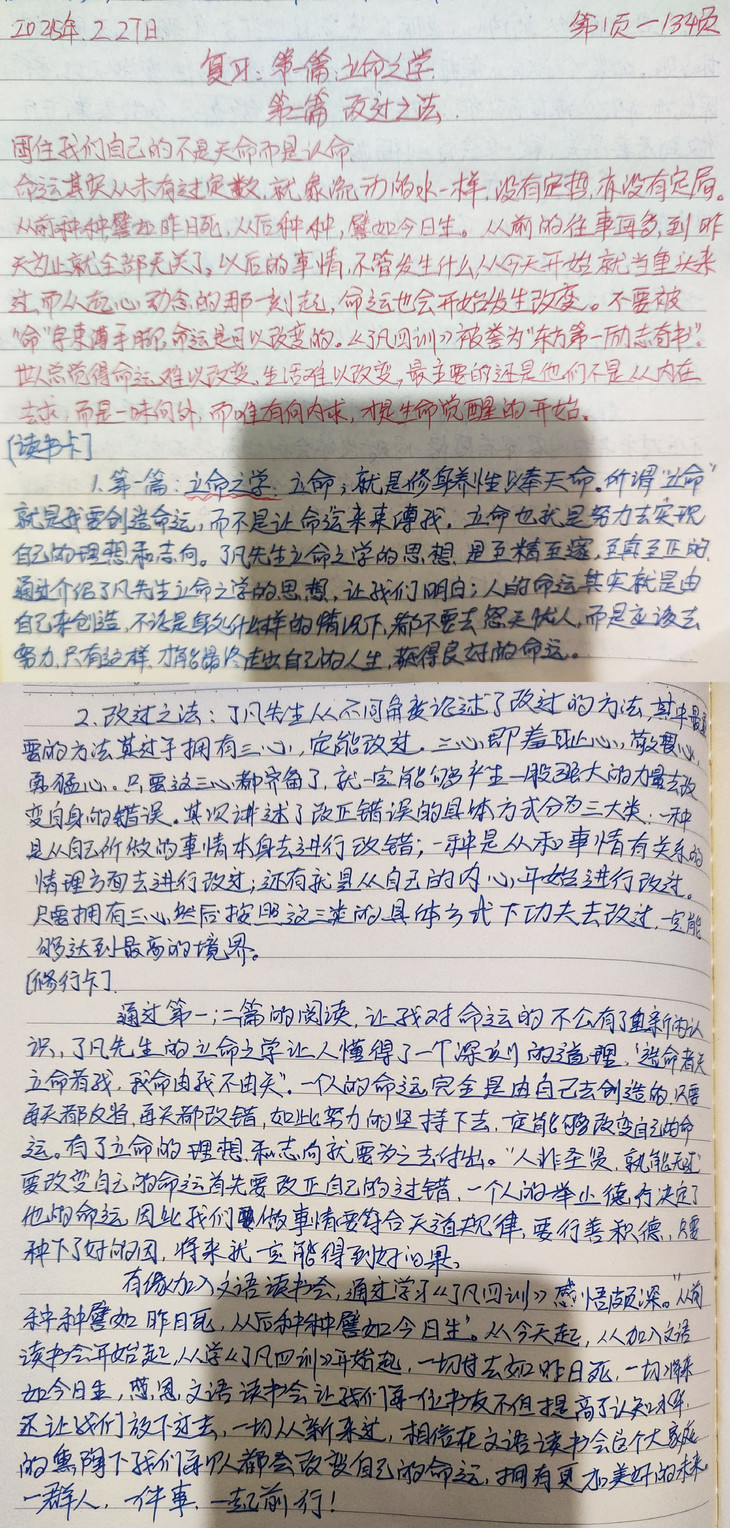 2025年.2.27日 第1页一134页
复习:第一篇:立命之学.
第二篇 改过之法.
困住我们自己的不是天命而是认命
命运其实从未有过定数,就象流动的水一样,没有定哲,亦没有定局。
从前种种譬如昨日死,从后种种,譬如今日生。从前的往事再多,到昨
天为止就全部无关了。以后的事情,不管发生什么,从今天开始就当重头来
过,而从起心动念的那一刻起,命运也会开始发生改变。不要被
“命”字束缚手脚,命运是可以改变的。《了凡四训》被誉为“东方第一励志奇书”.
世人总觉得命运难以改变,生活难以改变,最主要的还是他们不是从内在
去求,而是一味向外,而唯有向内求,才是生命觉醒的开始。
[读书卡]
1.第一篇:立命之学:立命;就是修身养性以奉天命。所谓“立命”
就是我要创造命运,而不是让命运来束缚我。立命也就是努力去实现
自己的理想和志向。了凡先生立命之学的思想,是至精至邃,至真至正的,
通过介绍了凡先生立命之学的思想,让我们明白;人的命运其实就是由
自己来创造,不论是身处什么样的情况下,都不要去怨天忧人,而是应该去
努力,只有这样,才能最终走出自己的人生,获得良好的命运。
2.改过之法:了凡先生从不同角度论述了改过的方法,其中最重
要的方法莫过于拥有三心,定能改过。三心即羞耻心,敬畏心,
勇猛心。只要这三心都齐备了,就一定能够产生一股强大的力量去改
变自身的错误。其次讲述了改正错误的具体方式分为三大类:一种
是从自己所做的事情本身去进行改错;一种是从和事情有关系的
情理方面去进行改过;还有就是从自己的内心开始进行改过。
只要拥有三心,然后按照这三类的具体方式下功夫去改过,一定能
够达到最高的境界。
[修行卡].
通过第一;二篇的阅读,让我对命运的不公有了重新的认
识,了凡先生的立命之学让人懂得了一个深刻的道理,“造命者天
立命者我,我命由我不由天”.一个人的命运完全是由自己去创造的,只要
每天都反省,每天都改错,如此努力的坚持下去,定能够改变自己的命
运。有了立命的理想和志向就要为之去付出。“人非圣贤,孰能无过”
要改变自己的命运首先要改正自己的过错,一个人的举止德行决定了
他的命运,因此我们做事情要符合天道规律,要行善积德,只要
种下了好的因,将来就一定能得到好的果。
有缘加入文语读书会,通过学习《了凡四训》感悟颇深。“从前
种种譬如昨日死,从后种种譬如今日生”。从今天起,从加入文语
读书会开始起,从学《了凡四训》开始起,一切过去如昨日死,一切将来
如今日生,感恩文语读书会让我们每一位书友不但提高了认知水平,
还让我们放下过去,一切从新来过,相信在文语读书会这个大家庭
的熏陶下我们每个人都会改变自己的命运,拥有更加美好的未来.
一群人,一件事,一起前行!